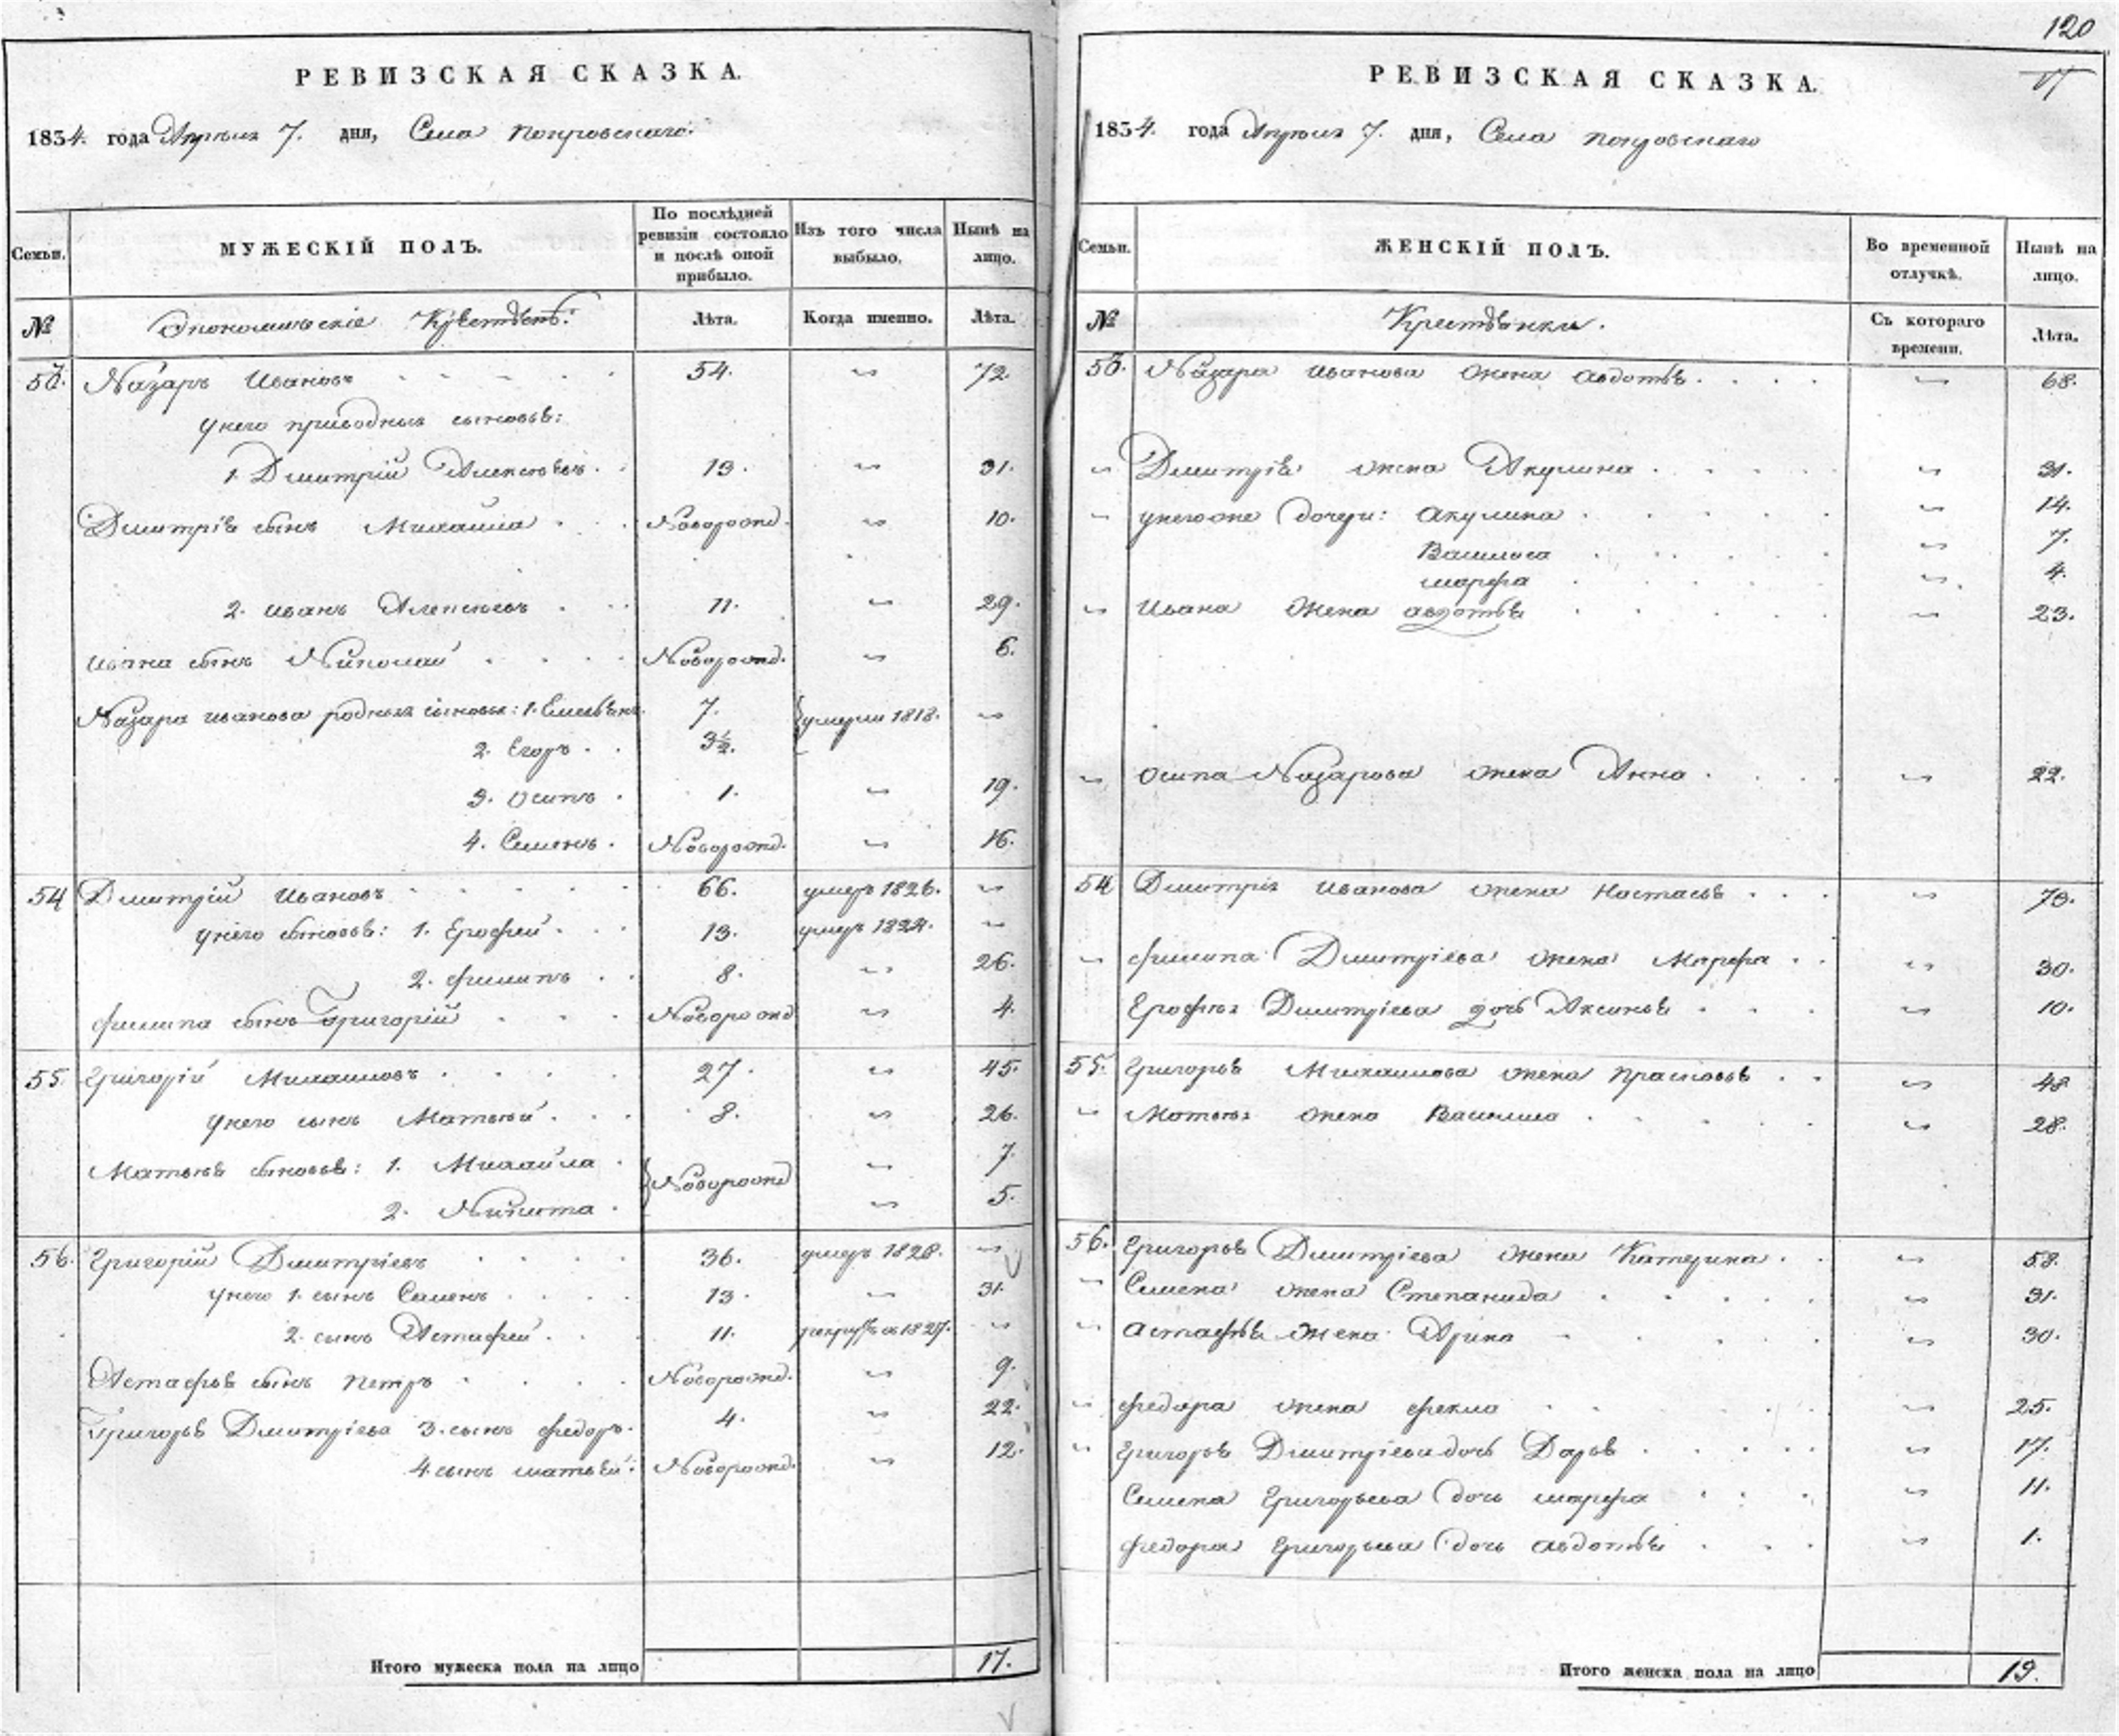 120
РЕВИЗСКАЯ СКАЗКА.
1834. года Апреля 7. дня, Села Покровскаго.
Семьи.
МУЖЕСКІЙ ПОЛЪ.
По послѣдней ревизіи состояло и послѣ оной прибыло.
Изъ того числа выбыло.
Нынѣ на лицо.
№
Экономическіе Крестьянѣ:
Лѣта.
Когда именно.
Лѣта.
53. Назаръ Ивановъ 54. 72.
у него приводныя сыновьѣ:
1. Дмитрій Алексѣевъ. 13. 31.
Дмитрія сынъ Михайла Новорожд. 10.
2. Иванъ Алексѣевъ 11. 29.
Ивана сынъ Николай Новорожд. 6.
Назара Иванова родныя сыновья: 1. Емельянъ. 7. умерли 1818.
2. Егоръ. 3½.
3. Осипъ 1. 19.
4. Семенъ. Новорожд. 16.
54 Дмитрій Ивановъ 66. умеръ 1826.
у него сыновьѣ: 1. Ерофей. 13. умеръ 1822.
2. Филипъ 8. 26.
Филипа сынъ Григорій Новорожд 4.
55. Григорій Михайловъ 27. 45.
у него сынъ Матвѣй. 8. 26.
Матвѣя сыновьѣ: 1. Михайла Новорожд 7.
2. Никита. 5.
56. Григорій Дмитріевъ 36. умеръ 1828.
у него 1. сынъ Семенъ 13. 31.
2. сынъ Астафей. 11. 1827.
Астафьѣ сынъ Петръ Новорожд. 9.
Григорьѣ Дмитріева 3. сынъ Федоръ. 4. 22.
4. сынъ Матвѣй: Новорожд. 12.
Итого мужеска пола на лицо 17.
РЕВИЗСКАЯ СКАЗКА.
1834. года Апреля 7. дня, Села Покровскаго
Семьи.
ЖЕНСКІЙ ПОЛЪ.
Во временной отлучкѣ.
Нынѣ на лицо.
№
Крестьянки.
Съ котораго времени.
Лѣта.
53. Назара Иванова жена Авдотья. 68.
Дмитрія жена Акулина. 31.
у него же дочери: Акулина 14.
Василиса 7.
Марфа 4.
Ивана жена Авдотья 23.
Осипа Назарова жена Анна 22.
54 Дмитрія Иванова жена Настасьѣ 70.
Филипа Дмитріева жена Марфа 30.
Ерофея Дмитріева дочь Аксиньѣ 10.
55. Григорьѣ Михайлова жена Прасковьѣ 48
Матвѣя жена Василиса 28.
56. Григорьѣ Дмитріева жена Катерина. 58.
Семена жена Степанида 31.
Астафья жена Арина 30.
Федора жена Фекла 25.
Григорьѣ Дмитріева дочь Дарьѣ 17.
Семена Григорьева дочь Марфа 11.
Федора Григорьева дочь Авдотья 1.
Итого женска пола на лицо 19.